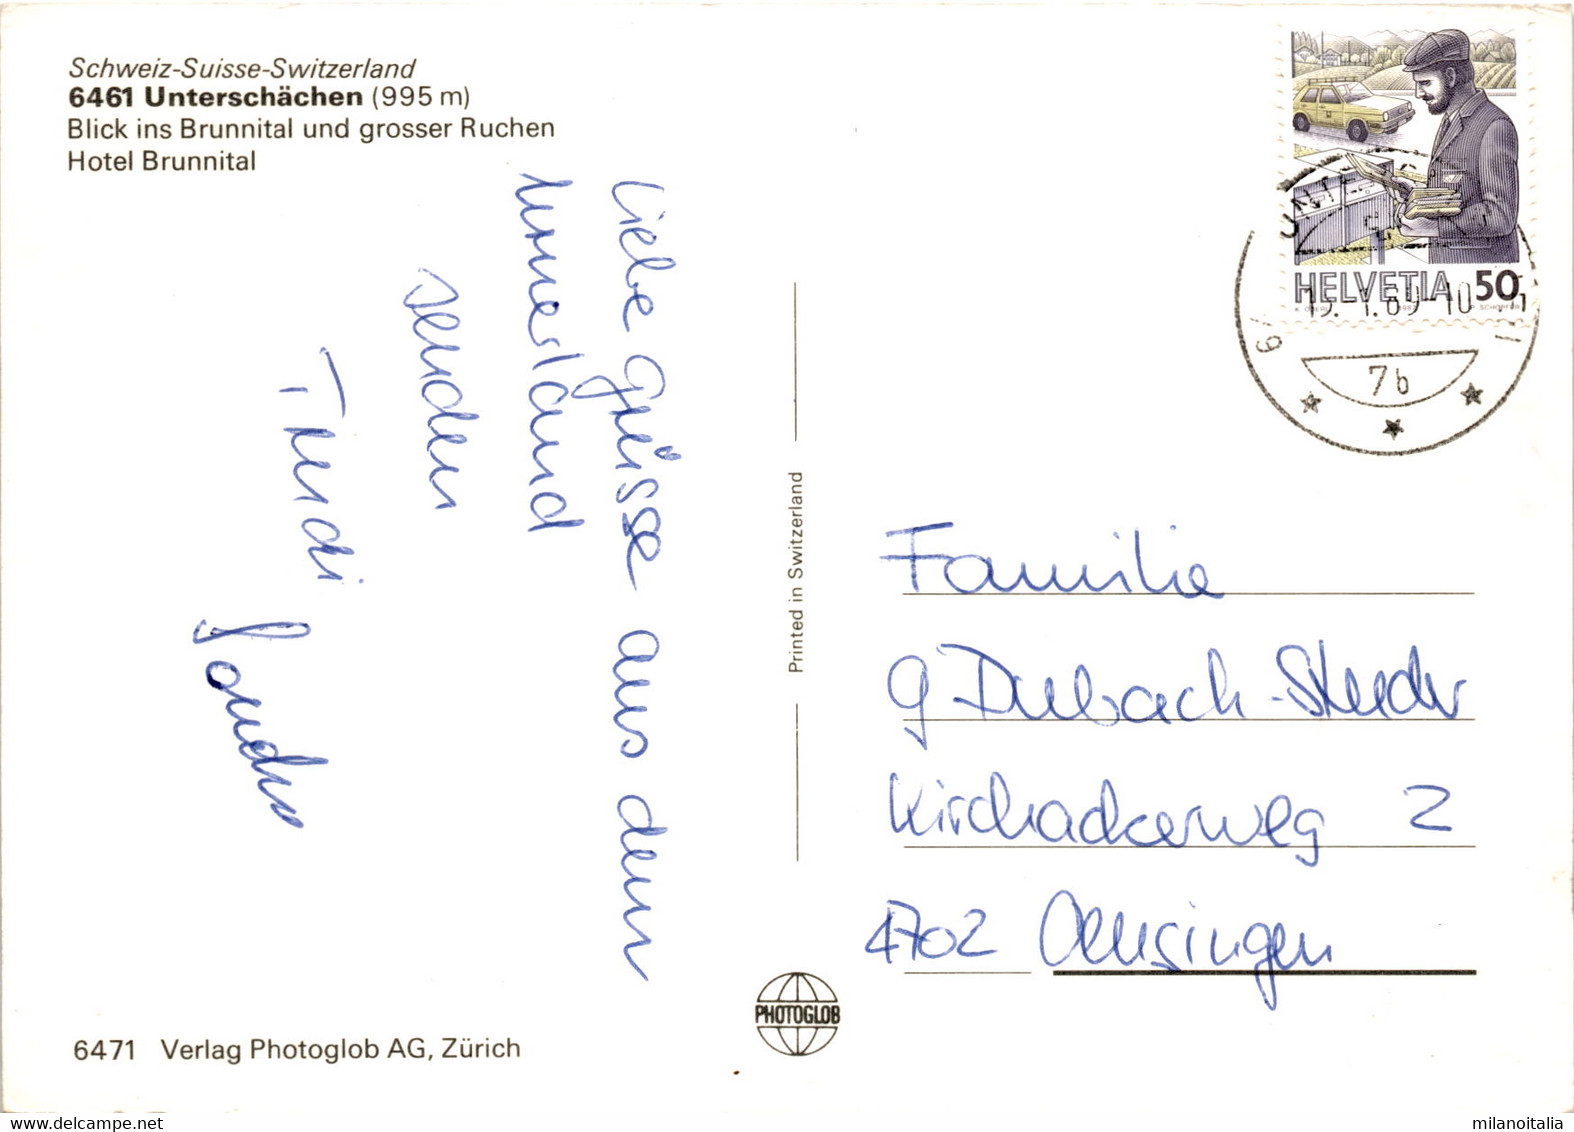 Schweiz-Suisse-Switzerland
6461 Unterschächen (995 m)
Blick ins Brunnital und grosser Ruchen
Hotel Brunnital
Liebe Grüsse aus dem
Urnerland
senden
Trudi
Sandra
Printed in Switzerland
HELVETIA 50
7b
Familie
G Dubach-Studer
Kirchackerweg 2
4702 Oensingen
PHOTOGLOB
6471 Verlag Photoglob AG, Zürich
www.delcampe.net
milanoitalia